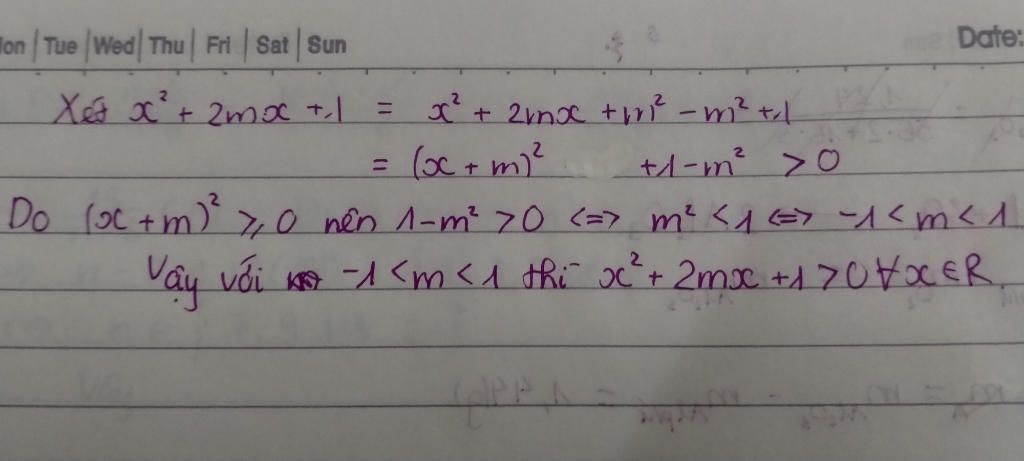 Mon Tue Wed Thu Fri Sat Sun Date:
Xét x² + 2mx + 1 = x² + 2mx + m² - m² + 1
= (x + m)² + 1 - m² > 0
Do (x + m)² ⩾ 0 nên 1 - m² > 0 <=> m² < 1 <=> -1 < m < 1
Vậy với -1 < m < 1 thì x² + 2mx + 1 > 0 ∀x ∈ R.